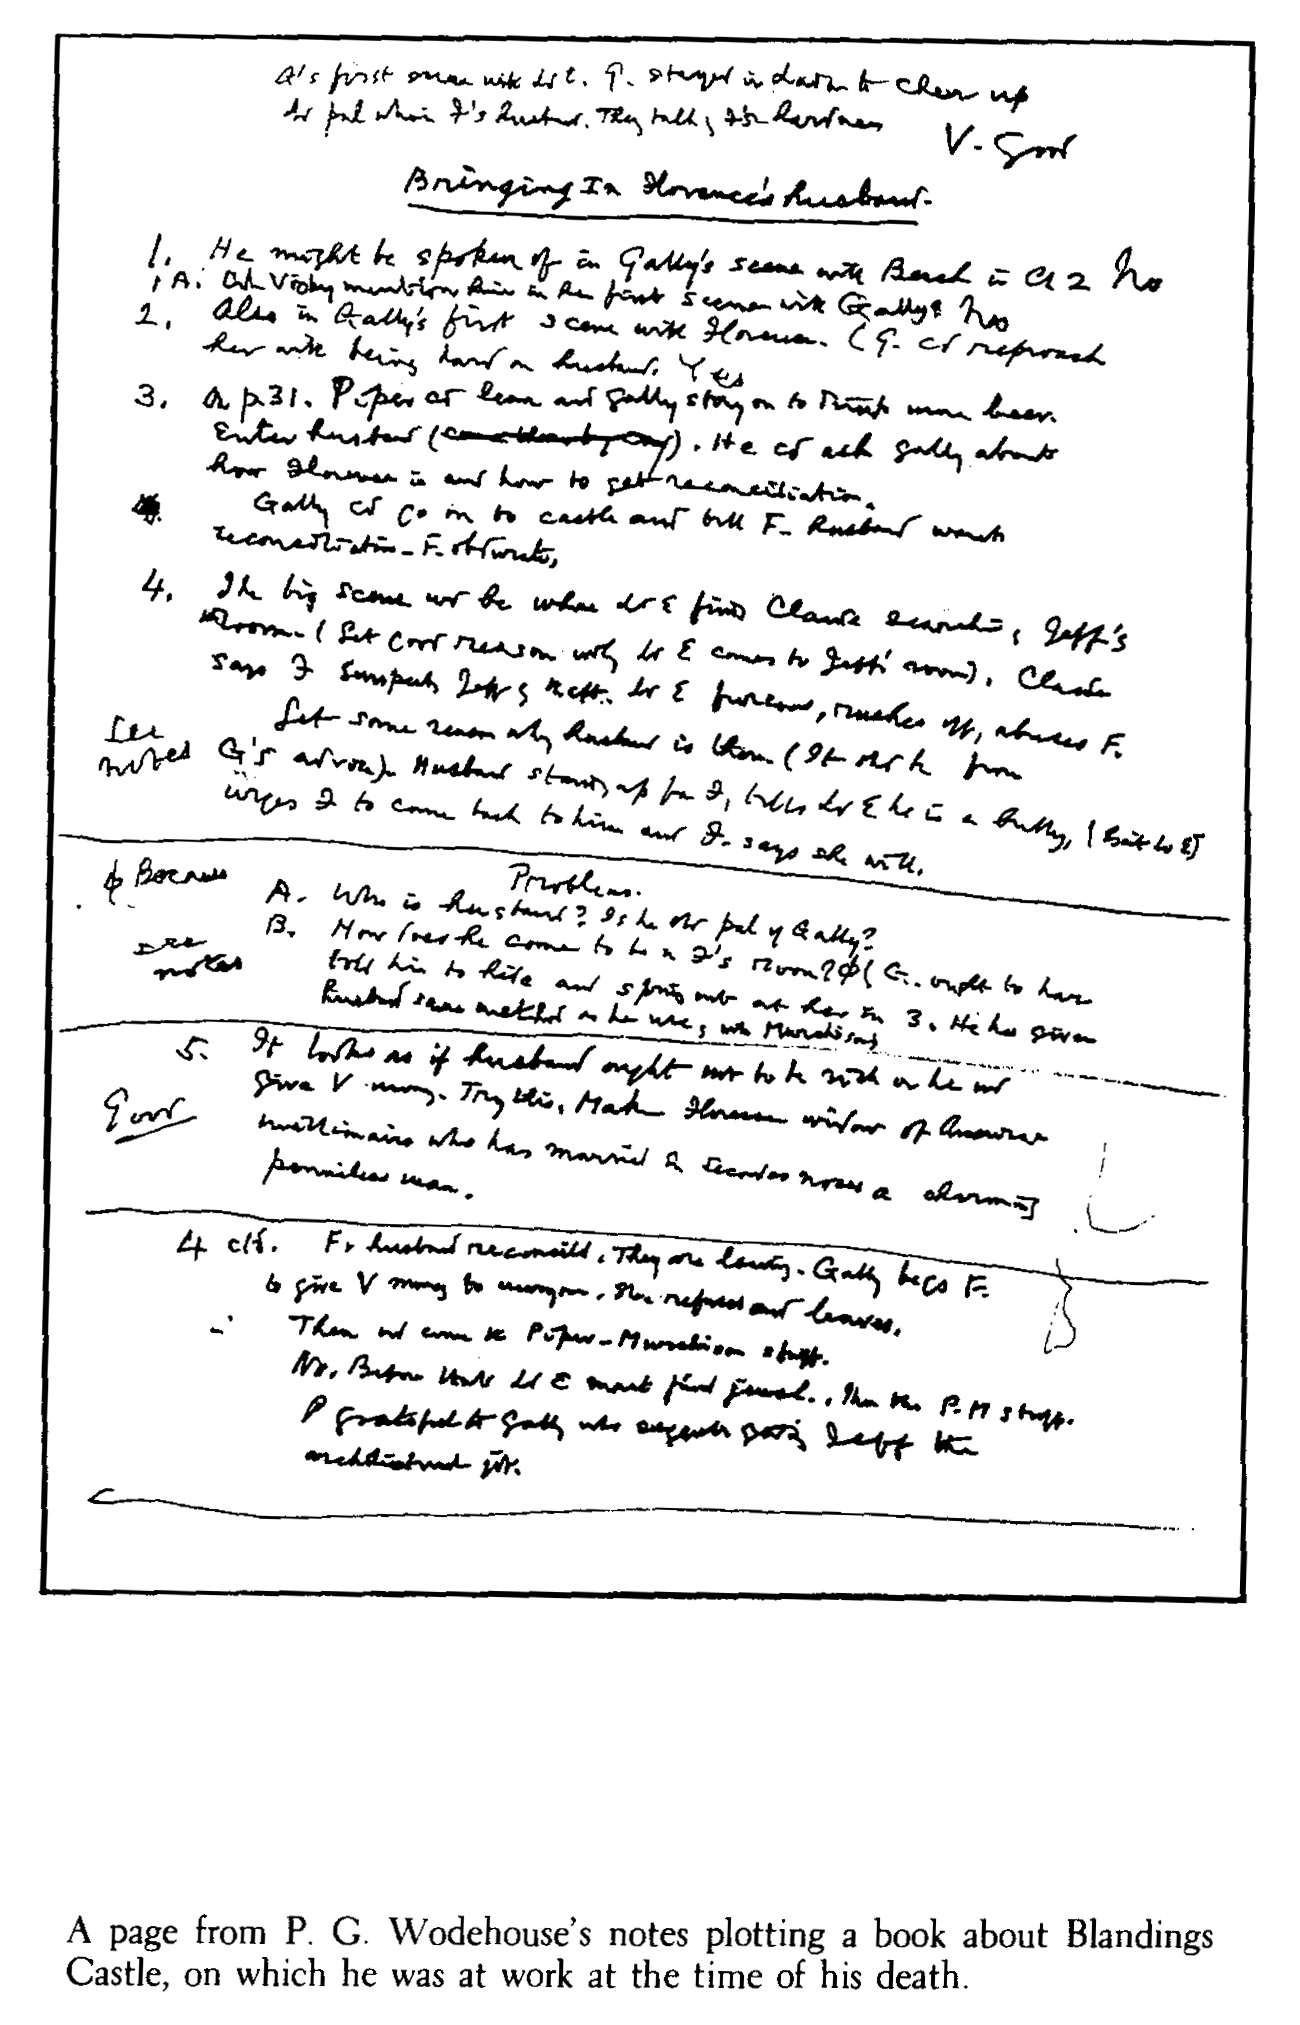 G's first scene with Ld E. G. stayed in to cheer up
old pal who is F's husband. They talk of F's hardness
V. Good
Bringing In Florence's husband.
1. He might be spoken of in Gally's scene with Beach in Ch 2 No
1A. Vicky mention him in her first scene with Gally? No
2. Also in Gally's first scene with Florence. (G. cd reproach
her with being hard on husband. Yes
3. On p.31. Piper cd leave and Gally stay on to drink more beer.
Enter husband. He cd ask Gally about
how Florence is and how to get reconciliation.
Gally cd go on to castle and tell F. husband wants
reconciliation – F. obdurate.
4. The big scene wd be when Ld E finds Claude searching Jeff's
room. (Get good reason why Ld E comes to Jeff's room). Claude
says F suspects Jeff of theft. Ld E furious, rushes off, abuses F.
See
notes
Get some reason why husband is there (It shd be from
G's advice). Husband stands up for F, tells Ld E he is a bully, (Said to E)
urges F to come back to him and F. says she will.
ϕ Because
Problems.
A. Who is husband? Is he old pal of Gally?
B. How does he come to be in F's room? ϕ (G. ought to have
see
notes
told him to hide and spring out at her in 3. He has given
husband same method as he uses with Murchison)
5. It looks as if husband ought not to be rich or he wd
give V money. Try this. Make Florence widow of American
Good
millionaire who has married en secondes noces a charming
penniless man.
4 ctd. F, husband reconciled. They are leaving. Gally begs F.
to give V money to marry on. She refuses and leaves.
Then wd come the Piper–Murchison stuff.
No. Before that Ld E must find Then the P-M stuff.
P grateful to Gally who suggests giving Jeff the
architectural job.
A page from P. G. Wodehouse's notes plotting a book about Blandings
Castle, on which he was at work at the time of his death.